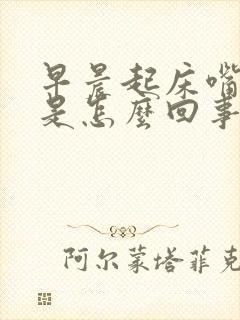 早晨起床嘴
是怎麼回事
阿尔蒙塔菲克